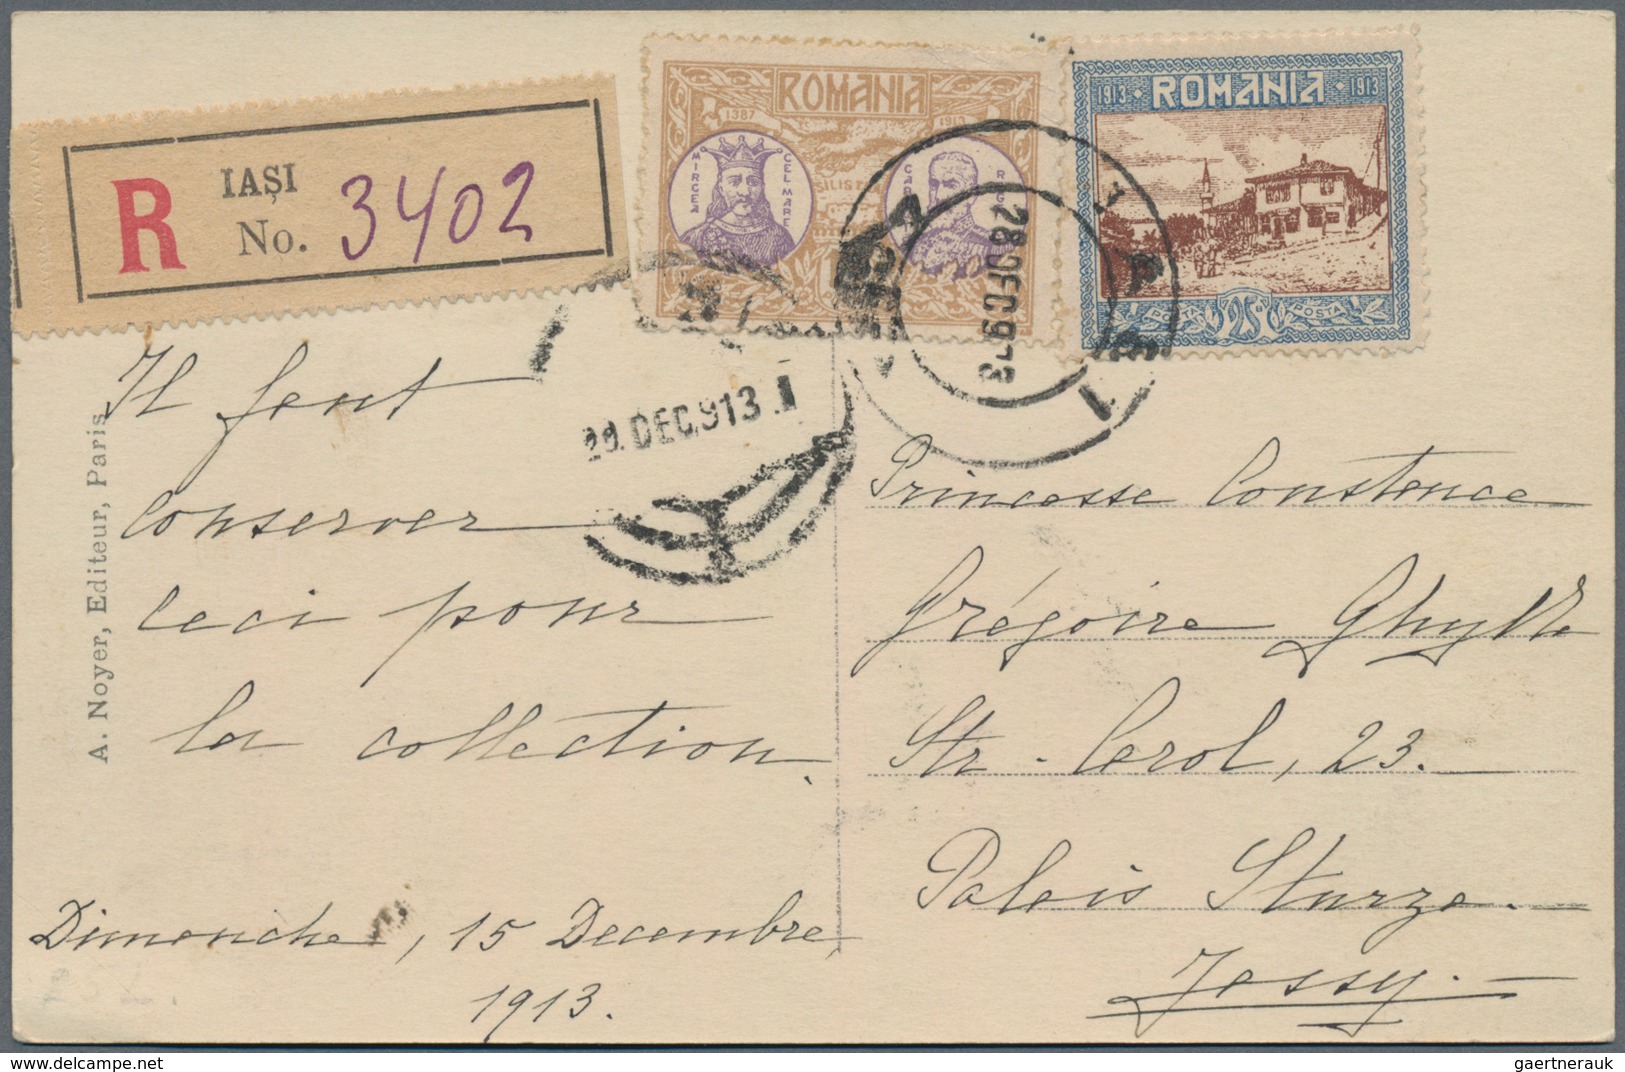 R
IAȘI
No. 3402
ROMANIA
1387 1913
MIRCEA CEL MARE
SILISTRA
CAROL REGE
1913 · ROMANIA · 1913
POSTA 25 POSTA
28 DEC 913
28. DEC. 913.
Il faut
conserver
ceci pour
la collection.
Dimanche, 15 Decembre
1913.
A. Noyer, Editeur, Paris
Princesse Constance
Grégoire Ghyka
Str. Carol, 23.
Palais Sturza.
Jassy.
gaertnerauk